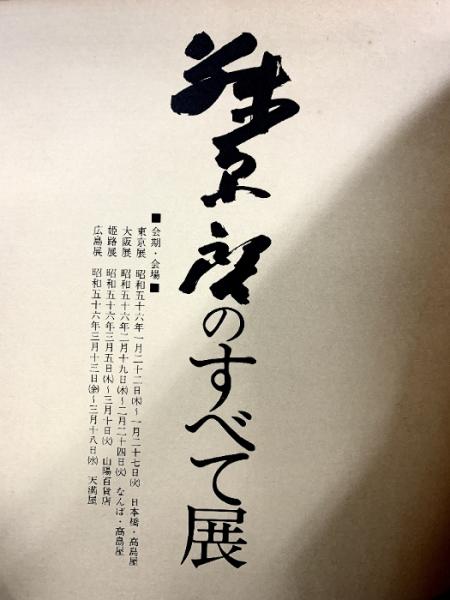 藤原啓のすべて展
■会期・会場■
東京展 昭和五十六年一月二十二日㈭〜一月二十七日㈫ 日本橋・高島屋
大阪展 昭和五十六年二月十九日㈭〜二月二十四日㈫ なんば・高島屋
姫路展 昭和五十六年三月五日㈭〜三月十日㈫ 山陽百貨店
広島展 昭和五十六年三月十三日㈮〜三月十八日㈬ 天満屋